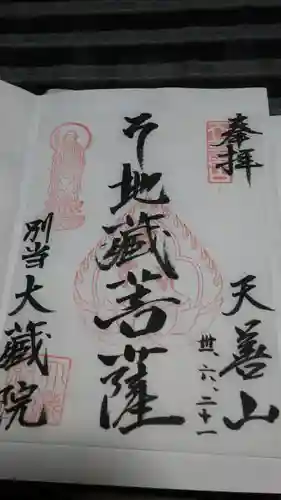 奉拝
天善山
卅、六、二十一
地藏菩薩
別当大蔵院